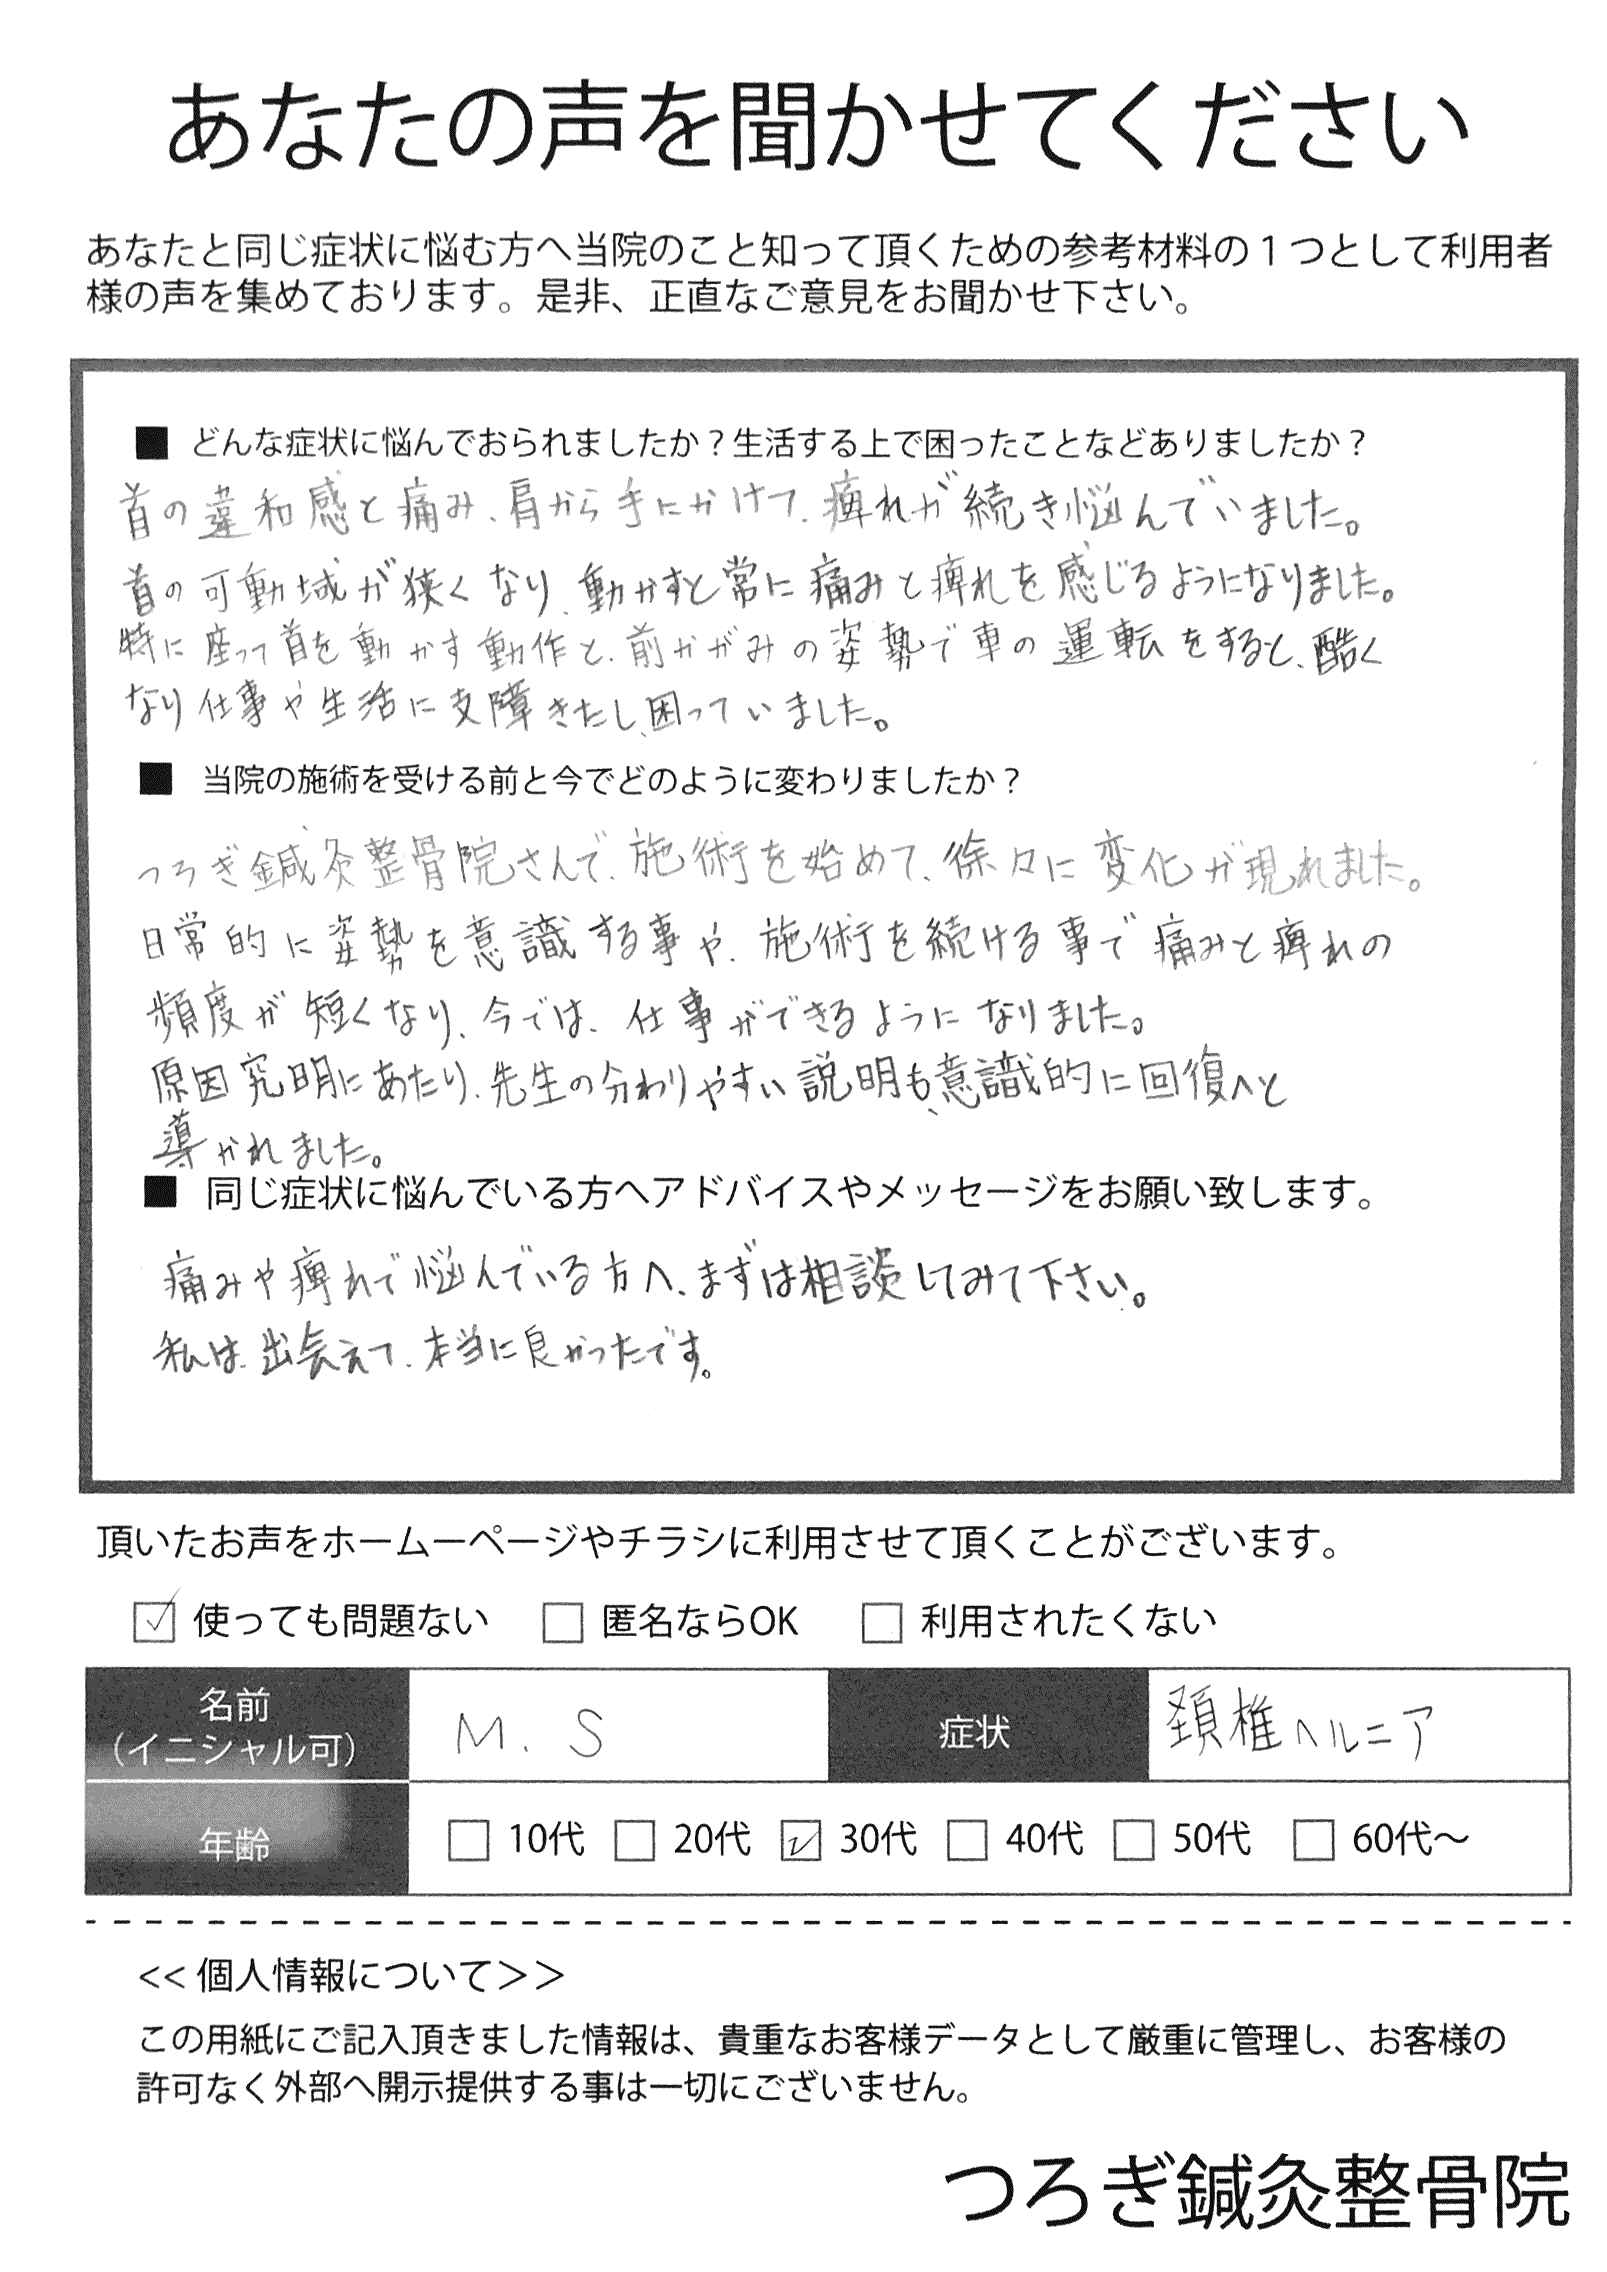 あなたの声を聞かせてください
あなたと同じ症状に悩む方へ当院のこと知って頂くための参考材料の１つとして利用者
様の声を集めております。是非、正直なご意見をお聞かせ下さい。
■ どんな症状に悩んでおられましたか？生活する上で困ったことなどありましたか？
首の違和感と痛み、肩から手にかけて、痺れが続き悩んでいました。
首の可動域が狭くなり、動かすと常に痛みと痺れを感じるようになりました。
特に座って首を動かす動作と、前かがみの姿勢で車の運転をすると、酷く
なり仕事や生活に支障きたし、困っていました。
■ 当院の施術を受ける前と今でどのように変わりましたか？
つろぎ鍼灸整骨院さんで、施術を始めて、徐々に変化が現れました。
日常的に姿勢を意識する事や、施術を続ける事で痛みと痺れの
頻度が短くなり、今では、仕事ができるようになりました。
原因究明にあたり、先生の分わりやすい説明も、意識的に回復へと
導かれました。
■ 同じ症状に悩んでいる方へアドバイスやメッセージをお願い致します。
痛みや痺れで悩んでいる方へ、まずは相談してみて下さい。
私は、出会えて、本当に良かったです。
頂いたお声をホームーページやチラシに利用させて頂くことがございます。
☑ 使っても問題ない □ 匿名ならOK □ 利用されたくない
名前
（イニシャル可） M．S 症状 頚椎ヘルニア
年齢 □ 10代 □ 20代 ☑ 30代 □ 40代 □ 50代 □ 60代〜
<< 個人情報について＞＞
この用紙にご記入頂きました情報は、貴重なお客様データとして厳重に管理し、お客様の
許可なく外部へ開示提供する事は一切にございません。
つろぎ鍼灸整骨院